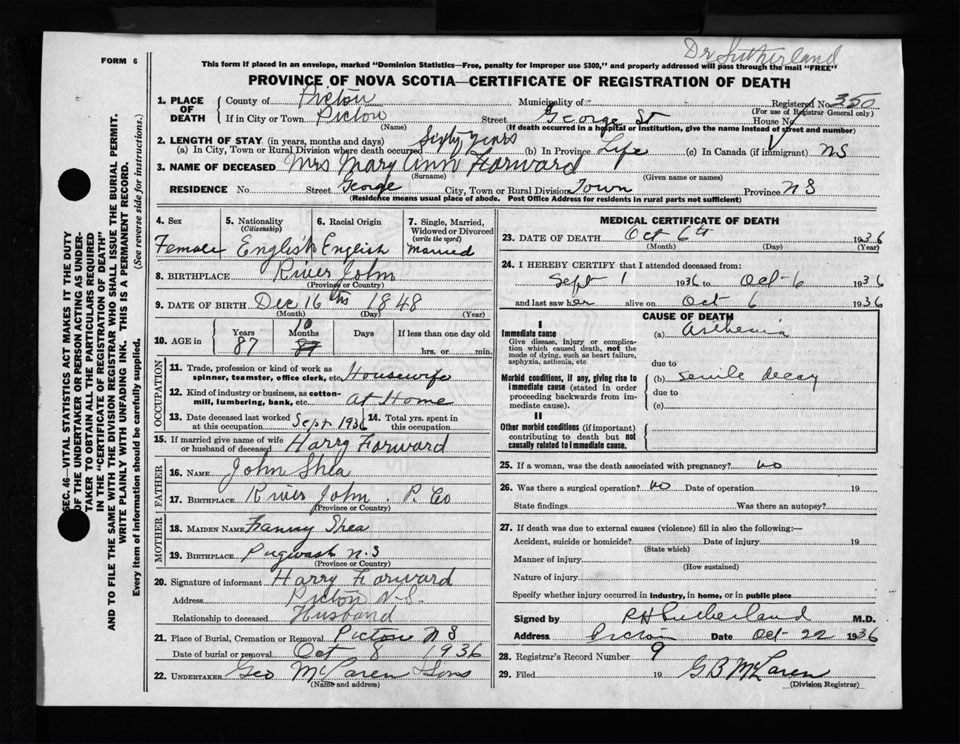 Dr Sutherland
FORM 6
This form if placed in an envelope, marked "Dominion Statistics—Free, penalty for improper use $300," and properly addressed will pass through the mail "FREE"
PROVINCE OF NOVA SCOTIA—CERTIFICATE OF REGISTRATION OF DEATH
1. PLACE OF DEATH { County of Pictou Municipality of Registered No. 350
(For use of Registrar General only)
If in City or Town Pictou Street George St House No.
(Name) (If death occurred in a hospital or institution, give the name instead of street and number)
2. LENGTH OF STAY (in years, months and days)
(a) In City, Town or Rural Division where death occurred Sixty years (b) In Province Life (c) In Canada (if immigrant) N S
3. NAME OF DECEASED Mrs Mary Ann Forward
(Surname) (Given name or names)
RESIDENCE No. Street George City, Town or Rural Division Town Province N S
(Residence means usual place of abode. Post Office Address for residents in rural parts not sufficient)
4. Sex 5. Nationality (Citizenship) 6. Racial Origin 7. Single, Married, Widowed or Divorced (write the word)
Female English English Married
8. BIRTHPLACE River John
(Province or Country)
9. DATE OF BIRTH Dec 16 ths 1848
(Month) (Day) (Year)
10. AGE in Years Months Days If less than one day old
87 10 87 hrs. or min.
OCCUPATION
11. Trade, profession or kind of work as spinner, teamster, office clerk, etc. Housewife
12. Kind of industry or business, as cotton-mill, lumbering, bank, etc. At Home
13. Date deceased last worked at this occupation Sept 1936 14. Total yrs. spent in this occupation
15. If married give name of wife or husband of deceased Harry Forward
FATHER
16. NAME John Shea
17. BIRTHPLACE River John. P. Co
(Province or Country)
MOTHER
18. MAIDEN NAME Franny Shea
19. BIRTHPLACE Pugwash N.S
(Province or Country)
20. Signature of informant Harry Forward
Address Pictou N.S.
Relationship to deceased Husband
21. Place of Burial, Cremation or Removal Pictou N S
Date of burial or removal Oct 8 1936
22. UNDERTAKER Geo McLaren & Sons
(Name and address)
MEDICAL CERTIFICATE OF DEATH
23. DATE OF DEATH Oct 6th 1936
(Month) (Day) (Year)
24. I HEREBY CERTIFY that I attended deceased from:
Sept 1 1936 to Oct-6 1936
and last saw her alive on Oct 6 1936
CAUSE OF DEATH
I
Immediate cause (a) Asthenia
Give disease, injury or complication which caused death, not the mode of dying, such as heart failure, asphyxia, asthenia, etc.
due to
Morbid conditions, if any, giving rise to immediate cause (stated in order proceeding backwards from immediate cause). (b) Senile Decay
due to
(c)
II
Other morbid conditions (if important) contributing to death but not causally related to immediate cause.
25. If a woman, was the death associated with pregnancy? no
26. Was there a surgical operation? no Date of operation 19
State findings Was there an autopsy?
27. If death was due to external causes (violence) fill in also the following:—
Accident, suicide or homicide? Date of injury 19
(State which)
Manner of injury
(How sustained)
Nature of injury
Specify whether injury occurred in industry, in home, or in public place
Signed by R H Sutherland M.D.
Address Pictou Date Oct-22 1936
28. Registrar's Record Number 9
29. Filed 19 G B McLaren
(Division Registrar)
SEC. 46—VITAL STATISTICS ACT MAKES IT THE DUTY
OF THE UNDERTAKER OR PERSON ACTING AS UNDER-
TAKER TO OBTAIN ALL THE PARTICULARS REQUIRED
IN THE "CERTIFICATE OF REGISTRATION OF DEATH"
AND TO FILE THE SAME WITH THE DIVISION REGISTRAR WHO SHALL ISSUE THE BURIAL PERMIT.
WRITE PLAINLY WITH UNFADING INK. THIS IS A PERMANENT RECORD.
Every item of information should be carefully supplied. (See reverse side for instructions.)